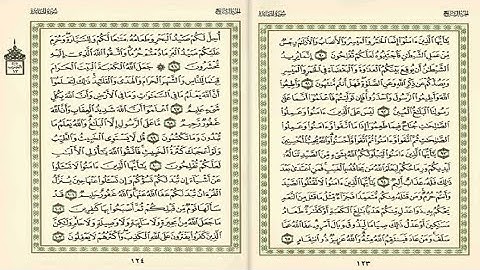 سورة المائدة
الجزء السابع
يأيها الذين ءامنوا إنما الخمر والميسر والأنصاب والأزلم رجس
من عمل الشيطن فاجتنبوه لعلكم تفلحون ٩٠ إنما يريد
الشيطن أن يوقع بينكم العدوة والبغضاء في الخمر والميسر
ويصدكم عن ذكر الله وعن الصلوة فهل أنتم منتهون ٩١
وأطيعوا الله وأطيعوا الرسول واحذروا فإن توليتم فاعلموا أنما على
رسولنا البلغ المبين ٩٢ ليس على الذين ءامنوا وعملوا
الصلحت جناح فيما طعموا إذا ما اتقوا وءامنوا وعملوا
الصلحت ثم اتقوا وءامنوا ثم اتقوا وأحسنوا والله يحب المحسنين
٩٣ يأيها الذين ءامنوا ليبلونكم الله بشيء من الصيد تناله
أيديكم ورماحكم ليعلم الله من يخافه بالغيب فمن اعتدى
بعد ذلك فله عذاب أليم ٩٤ يأيها الذين ءامنوا لا تقتلوا الصيد
وأنتم حرم ومن قتله منكم متعمدا فجزاء مثل ما قتل من النعم
يحكم به ذوا عدل منكم هديا بلغ الكعبة أو كفرة طعام مسكين
أو عدل ذلك صياما ليذوق وبال أمره عفا الله عما
سلف ومن عاد فينتقم الله منه والله عزيز ذو انتقام ٩٥
١٢٣
الجزء السابع
سورة المائدة
أحل لكم صيد البحر وطعامه متعا لكم وللسيارة وحرم
عليكم صيد البر ما دمتم حرما واتقوا الله الذي إليه
تحشرون ٩٦ جعل الله الكعبة البيت الحرام
قيما للناس والشهر الحرام والهدي والقلئد ذلك لتعلموا
أن الله يعلم ما في السموت وما في الأرض وأن الله بكل
شيء عليم ٩٧ اعلموا أن الله شديد العقاب وأن الله
غفور رحيم ٩٨ ما على الرسول إلا البلغ والله يعلم ما
تبدون وما تكتمون ٩٩ قل لا يستوي الخبيث والطيب
ولو أعجبك كثرة الخبيث فاتقوا الله يأولي الألبب
لعلكم تفلحون ١٠٠ يأيها الذين ءامنوا لا تسئلوا
عن أشياء إن تبد لكم تسؤكم وإن تسئلوا عنها حين ينزل
القرءان تبد لكم عفا الله عنها والله غفور حليم ١٠١ قد
سألها قوم من قبلكم ثم أصبحوا بها كفرين ١٠٢
ما جعل الله من بحيرة ولا سائبة ولا وصيلة ولا حام ولكن
الذين كفروا يفترون على الله الكذب وأكثرهم لا يعقلون ١٠٣
١٢٤